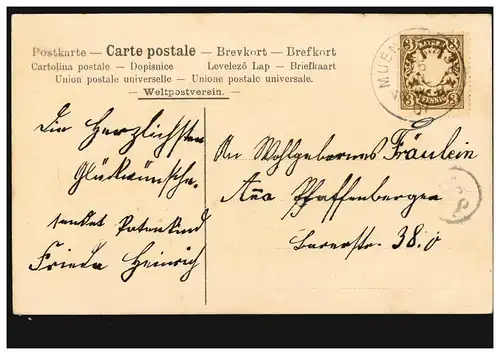 Postkarte — Carte postale — Brevkort — Brefkort
Cartolina postale — Dopisnice Levelező Lap — Briefkaart
Union postale universelle — Unione postale universale.
— Weltpostverein. —
BAYERN
3 3
3 PFENNIG 3
MUEN
Die Herzlichsten
Glückwünsche.
sendet Patenkind
Frieda Heinrich
An Wohlgebornes Fräulein
Aña Pfaffenberger
38.0